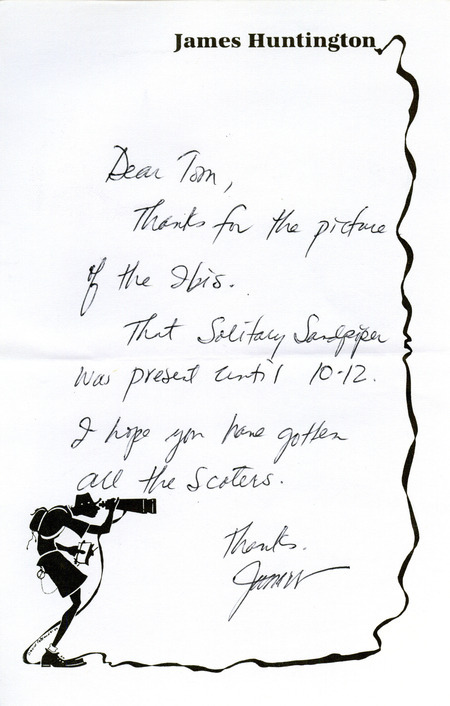 James Huntington
Dear Tom,
Thanks for the picture
of the Ibis.
That Solitary Sandpiper
was present until 10-12.
I hope you have gotten
all the Scoters.
Thanks.
James